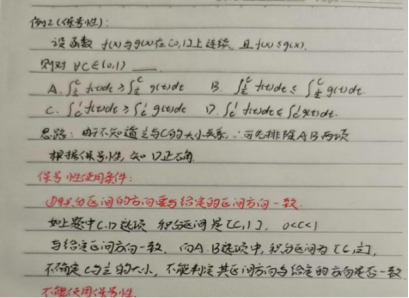 例2(保号性):
设函数 f(x)与g(x)在[0,1]上连续, 且f(x)≤g(x).
则对 ∀C∈(0,1) ____
A. ∫_{1/2}^{C} f(t)dt ≥ ∫_{1/2}^{C} g(t)dt B. ∫_{1/2}^{C} f(t)dt ≤ ∫_{1/2}^{C} g(t)dt
C. ∫_{C}^{1} f(t)dt ≥ ∫_{C}^{1} g(t)dt D. ∫_{C}^{1} f(t)dt ≤ ∫_{C}^{1} g(t)dt
思路: 由于不知道1/2与C的大小关系, ∴可先排除A B两项
根据保号性, 知D正确
保号性使用条件:
①积分区间的方向要与给定的区间方向一致.
如上题中C.D选项 积分区间是[C,1], 0<C<1
与给定区间方向一致. 而A.B选项中, 积分区间为[C,1/2],
不确定C与1/2的大小, 不能判定其区间方向与给定的方向是否一致
不能使用保号性.